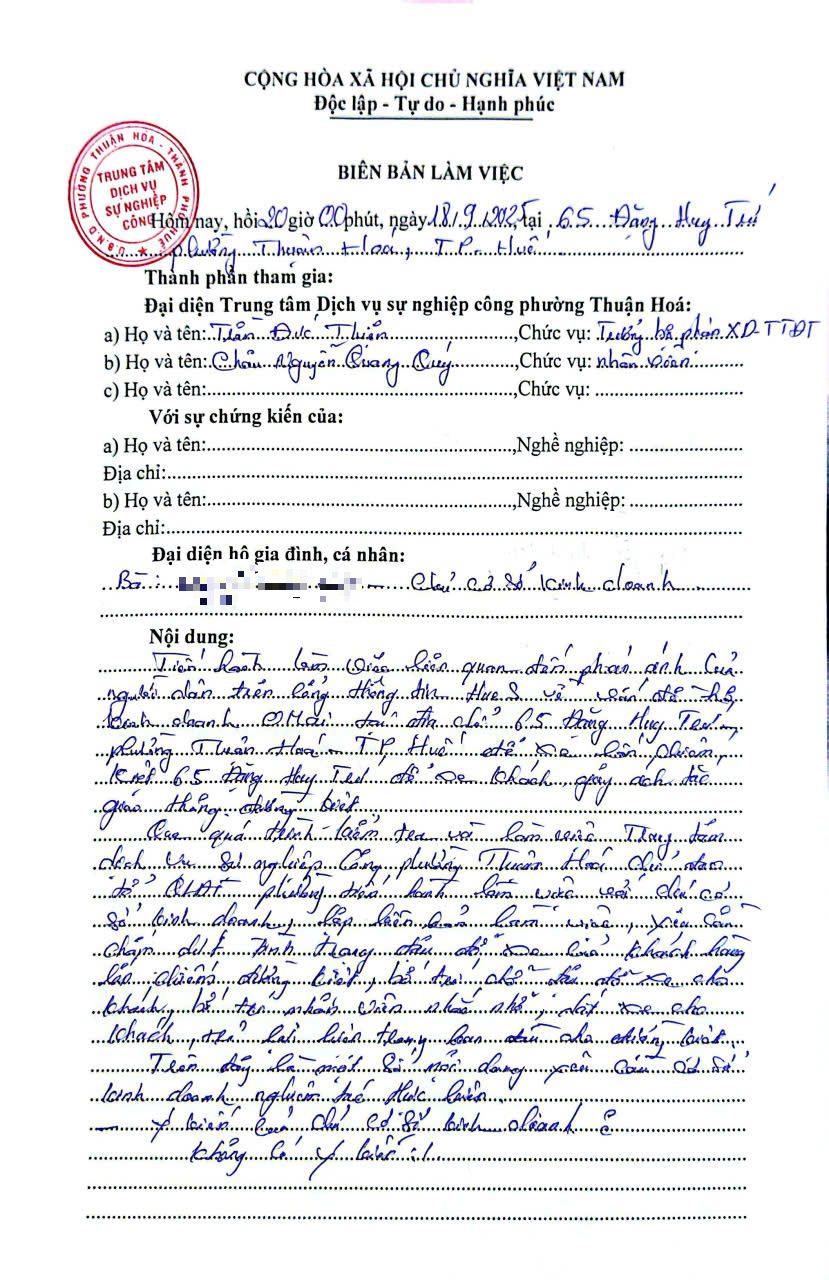 CỘNG HÒA XÃ HỘI CHỦ NGHĨA VIỆT NAM
Độc lập - Tự do - Hạnh phúc
U.B.N.D PHƯỜNG THUẬN HÓA - THÀNH PHỐ HUẾ
TRUNG TÂM
DỊCH VỤ
SỰ NGHIỆP
CÔNG
BIÊN BẢN LÀM VIỆC
Hôm nay, hồi 20 giờ 00 phút, ngày 18/9/2025, tại 65 Đặng Huy Trứ
phường Thuận Hoá, TP. Huế
Thành phần tham gia:
Đại diện Trung tâm Dịch vụ sự nghiệp công phường Thuận Hoá:
a) Họ và tên: Trần Đức Thiện, Chức vụ: Trưởng bộ phận XD-TTĐT
b) Họ và tên: Châu Nguyễn Quang Quý, Chức vụ: nhân viên
c) Họ và tên:, Chức vụ :
Với sự chứng kiến của:
a) Họ và tên:, Nghề nghiệp:
Địa chỉ:
b) Họ và tên:, Nghề nghiệp:
Địa chỉ:
Đại diện hộ gia đình, cá nhân:
Bà : - Chủ cơ sở kinh doanh
Nội dung:
Tiến hành làm việc liên quan đến phản ánh của
người dân trên cổng thông tin Hue.S về vấn đề hộ
kinh doanh O.Mai tại địa chỉ 65 Đặng Huy Trứ -
phường Thuận Hoá - TP Huế để xe lấn chiếm
kiệt 65 Đặng Huy Trứ để xe khách, gây ách tắc
giao thông đường kiệt
Qua quá trình kiểm tra và làm việc Trung tâm
dịch vụ sự nghiệp Công phường Thuận Hoá chỉ đạo
tổ QLĐT phường tiến hành làm việc với chủ cơ
sở kinh doanh, lập biên bản làm việc, yêu cầu
chấm dứt tình trạng đậu đỗ xe của khách hàng
lấn chiếm đường kiệt, bố trí chỗ đậu đỗ xe cho
khách, bố trí nhân viên nhắc nhở, dắt xe cho
khách, trả lại hiện trạng ban đầu cho đường kiệt.
Trên đây là một số nội dung yêu cầu cơ sở
kinh doanh nghiêm túc thực hiện.
- Ý kiến của chủ cơ sở kinh doanh :
Không có ý kiến :/.